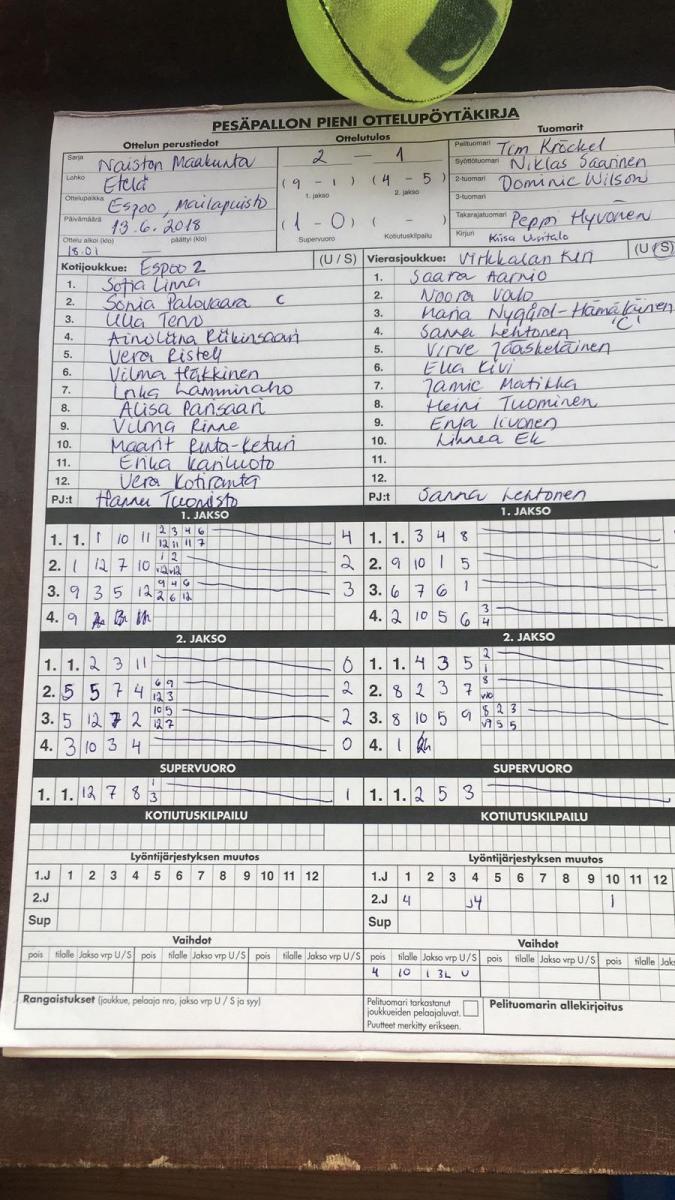 PESÄPALLON PIENI OTTELUPÖYTÄKIRJA
Ottelun perustiedot
Ottelutulos
Tuomarit
Sarja Naisten Maakunta
2 — 1
Pelituomari Tom Kröckel
Lohko Etelä
(9 - 1) (4 - 5)
1. jakso 2. jakso
Syöttötuomari Niklas Saarinen
Ottelupaikka Espoo, Mailapuisto
2-tuomari Dominic Wilson
3-tuomari
Päivämäärä 13.6.2018
(1 - 0) ( - )
Supervuoro Kotiutuskilpailu
Takarajatuomari Peppi Hyvönen
Ottelu alkoi (klo) päättyi (klo)
18.01
Kirjuri Kiisa Uusitalo
Kotijoukkue: Espoo 2 (U / S)
1. Sofia Linna
2. Sonia Palovaara C
3. Ulla Tervo
4.
5. Veera Risteli
6. Vilma Häkkinen
7. Inka Lamminaho
8. Alisa Pansaari
9. Vilma Rinne
10. Maarit Rinta-Keturi
11. Erika Kariluoto
12. Vera Kotiranta
PJ:t Hannu Tuomisto
Vierasjoukkue: Virkkalan Kiri (U / S)
1. Saara Aarnio
2. Noora Valo
3. Maria Nygård-Hämäläinen
4. Sanna Lehtonen "C"
5. Virve Jääskeläinen
6. Ella Kivi
7. Jamie Matikka
8. Heini Tuominen
9. Enja Iivonen
10. Linnea Ek
11.
12.
PJ:t Sanna Lehtonen
1. JAKSO
1. 1. 1 10 11 2 3 4 6 4
12 11 11 7
2. 1 12 7 10 1 2 2
3. 9 3 5 12 9 4 6 3
2 6 12
4. 9
1. JAKSO
1. 1. 3 4 8
2. 9 10 1 5
3. 6 7 6 1
4. 2 10 5 6 3
4
2. JAKSO
1. 1. 2 3 11 0
2. 5 5 7 4 6 9 2
12 3
3. 5 12 7 2 10 5 2
12 7
4. 3 10 3 4 0
2. JAKSO
1. 1. 4 3 5 2
1
2. 8 2 3 7 8
v10
3. 8 10 5 9 8 2 3
v9 5 5
4. 1
SUPERVUORO
1. 1. 12 7 8 1 1
3
SUPERVUORO
1. 1. 2 5 3
KOTIUTUSKILPAILU
KOTIUTUSKILPAILU
Lyöntijärjestyksen muutos
1.J 1 2 3 4 5 6 7 8 9 10 11 12
2.J
Sup
Lyöntijärjestyksen muutos
1.J 1 2 3 4 5 6 7 8 9 10 11 12
2.J 4 J4 1
Sup
Vaihdot
pois tilalle Jakso vrp U/S pois tilalle Jakso vrp U/S pois tilalle Jakso vrp U/S
Vaihdot
pois tilalle Jakso vrp U/S pois tilalle Jakso vrp U/S pois tilalle
4 10 1 3L U
Rangaistukset (joukkue, pelaaja nro, jakso vrp U / S ja syy)
Pelituomari tarkastanut
joukkueiden pelaajaluvat.
Puutteet merkitty erikseen.
Pelituomarin allekirjoitus